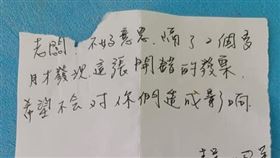 老闆！不好意思，隔了2個多
月才發現這張開錯的發票，
希望不会对你們造成影响